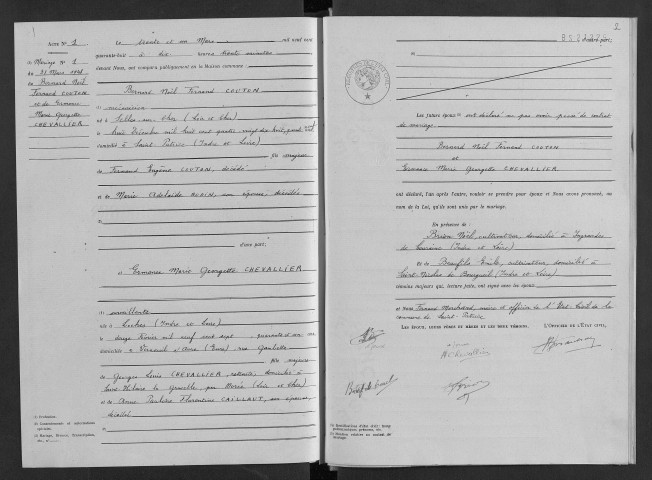 1
ACTE N° 1
Mariage N° 1
du 31 Mars 1948
de Bernard Noël
Fernand COUTON
et de Germaine
Marie Georgette
CHEVALLIER
Le trente et un Mars mil neuf cent
quarante-huit à dix heures trente minutes
devant Nous, ont comparu publiquement en la Maison commune
Bernard Noël Fernand COUTON
(1)
né à Selles sur Cher (Loir et Cher)
le trois Décembre mil huit cent quatre vingt dix huit,
domicilié à Saint Patrice (Indre et Loire)
fils majeur
de Fernand Eugène COUTON, décédé
et de Marie Adelaïde AUDIN, son épouse, décédée
d'une part,
et Germaine Marie Georgette CHEVALLIER
(1) surveillante
née à Loches (Indre et Loire)
le douze Février mil neuf cent sept, quarante et un ans
domiciliée à Verneuil s/ Avre (Eure) rue Gambetta
fille majeure
de Georges Louis CHEVALLIER, retraité, domicilié à
Saint Hilaire la Gravelle, par Morée (Loir et Cher)
et de Anne Florentine CAILLAUT, son épouse,
décédée
(1) Profession.
2
d'autre part;
Les futurs époux ont déclaré ne pas avoir passé de contrat
de mariage.
Bernard Noël Fernand COUTON
et
Germaine Marie Georgette CHEVALLIER
ont déclaré, l'un après l'autre, vouloir se prendre pour époux et Nous avons prononcé, au
nom de la Loi, qu'ils sont unis par le mariage.
En présence de :
Brion Noël, cultivateur, domicilié à Ingrandes
de Touraine (Indre et Loire)
Et de Beaufils Emile, cultivateur, domicilié à
Saint Nicolas de Bourgueil (Indre et Loire)
témoins majeurs qui, lecture faite, ont signé avec les époux
et Nous Fernand Marchand, maire et officier de l'Etat Civil de la
commune de Saint Patrice
LES ÉPOUX, LEURS PÈRES ET MÈRES ET LES DEUX TÉMOINS,
L'OFFICIER DE L'ÉTAT CIVIL,
G Chevallier
Beaufils Emile